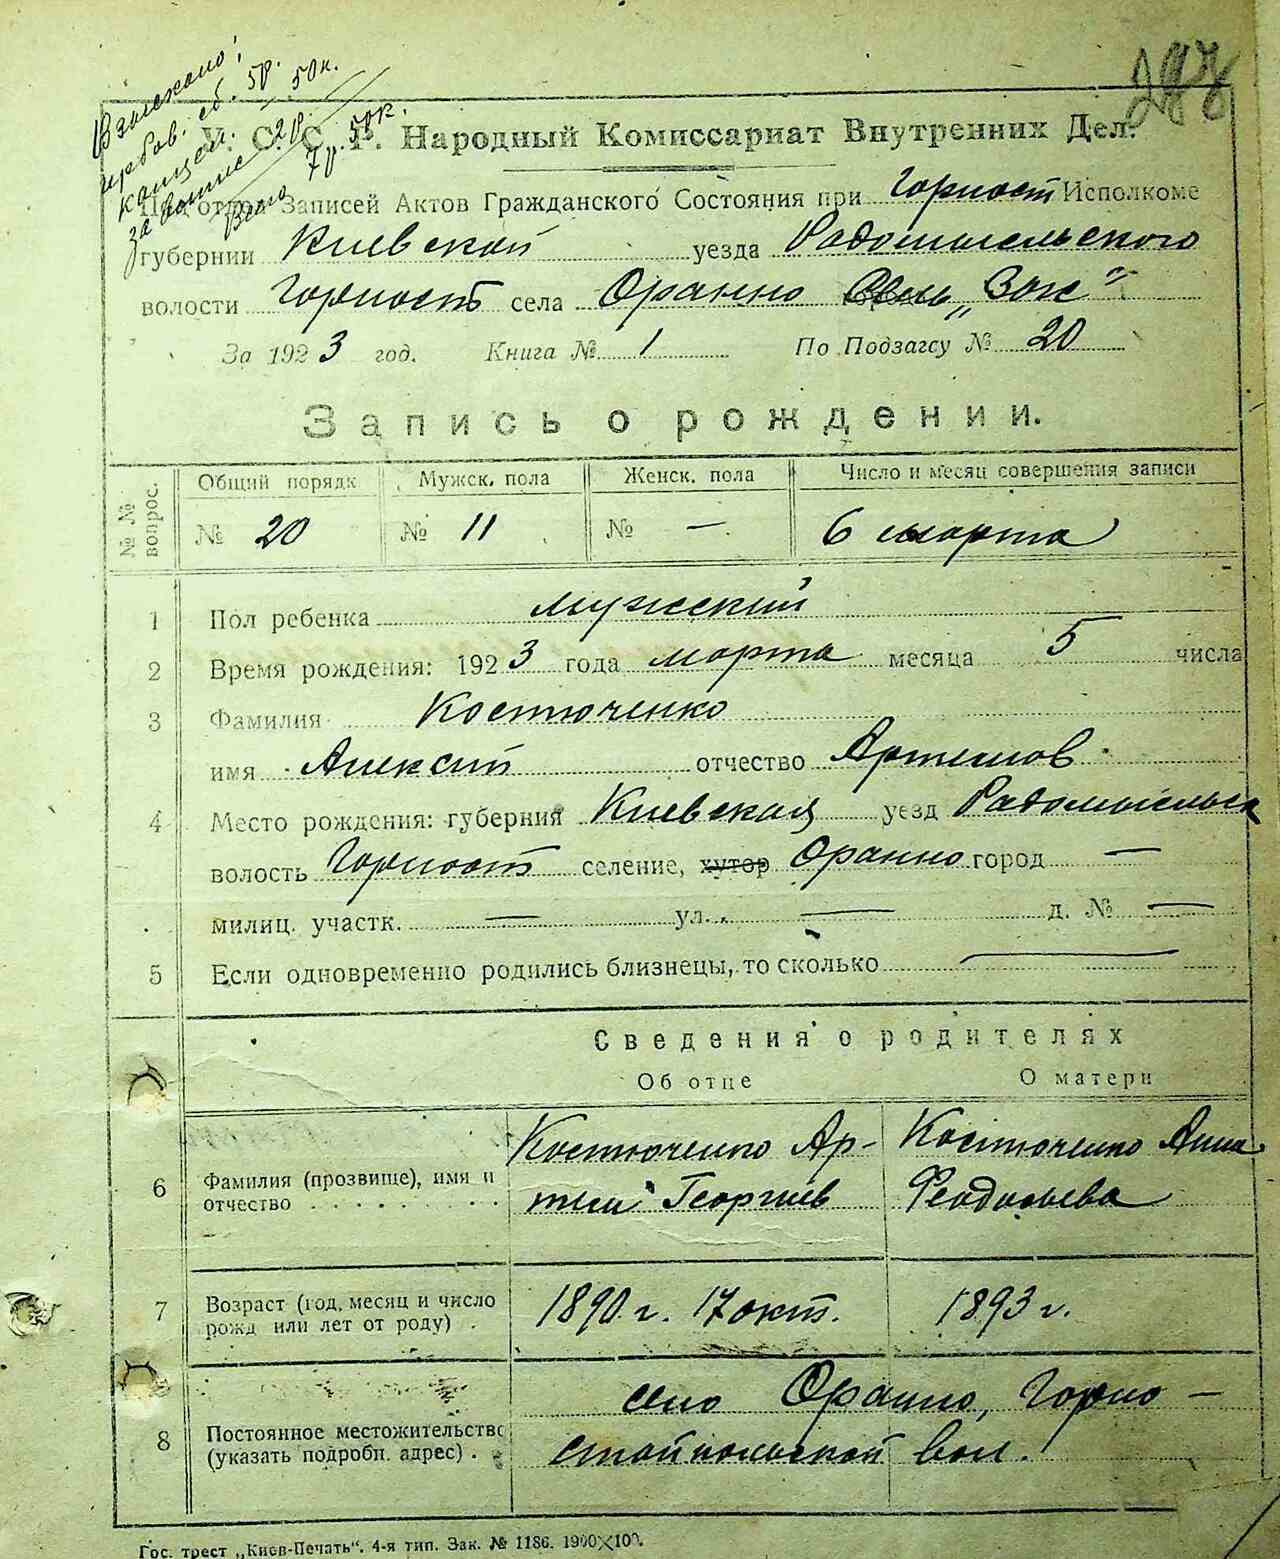 Взыскано:
гербов. сб. 5р.
канцел. 50к.
за бланк 2р. 50к.
Всего 7р. 50к.
287
У. С. С. Р. Народный Комиссариат Внутренних Дел.
Под'отдел Записей Актов Гражданского Состояния при Горност Исполкоме
губернии Киевской уезда Радомысльского
волости Горност села Оранно "Загс"
За 1923 год. Книга № 1 По Подзагсу № 20
Запись о рождении.
№ № вопрос. Общий порядк Мужск. пола Женск. пола Число и месяц совершения записи
№ 20 № 11 № — 6 марта
1 Пол ребенка мужский
2 Время рождения: 1923 года марта месяца 5 числа
3 Фамилия Костюченко
имя Алексей отчество Артемов
4 Место рождения: губерния Киевская уезд Радомысльск
волость Горност селение, хутор Оранно город —
милиц. участк. — ул. — д. № —
5 Если одновременно родились близнецы, то сколько —
Сведения о родителях
Об отце О матери
Костюченко Ар- Костюченко Анна
6 Фамилия (прозвище), имя и
отчество . . . . . . . . . . тем Георгиев Феодосьева
7 Возраст (год, месяц и число
рожд или лет от роду) . 1890 г. 17 окт. 1893 г.
село Оранно, Горно-
8 Постоянное местожительство
(указать подробн. адрес) . стайпольской вол.
Гос. трест „Киев-Печать". 4-я тип. Зак. № 1186. 1900×100.